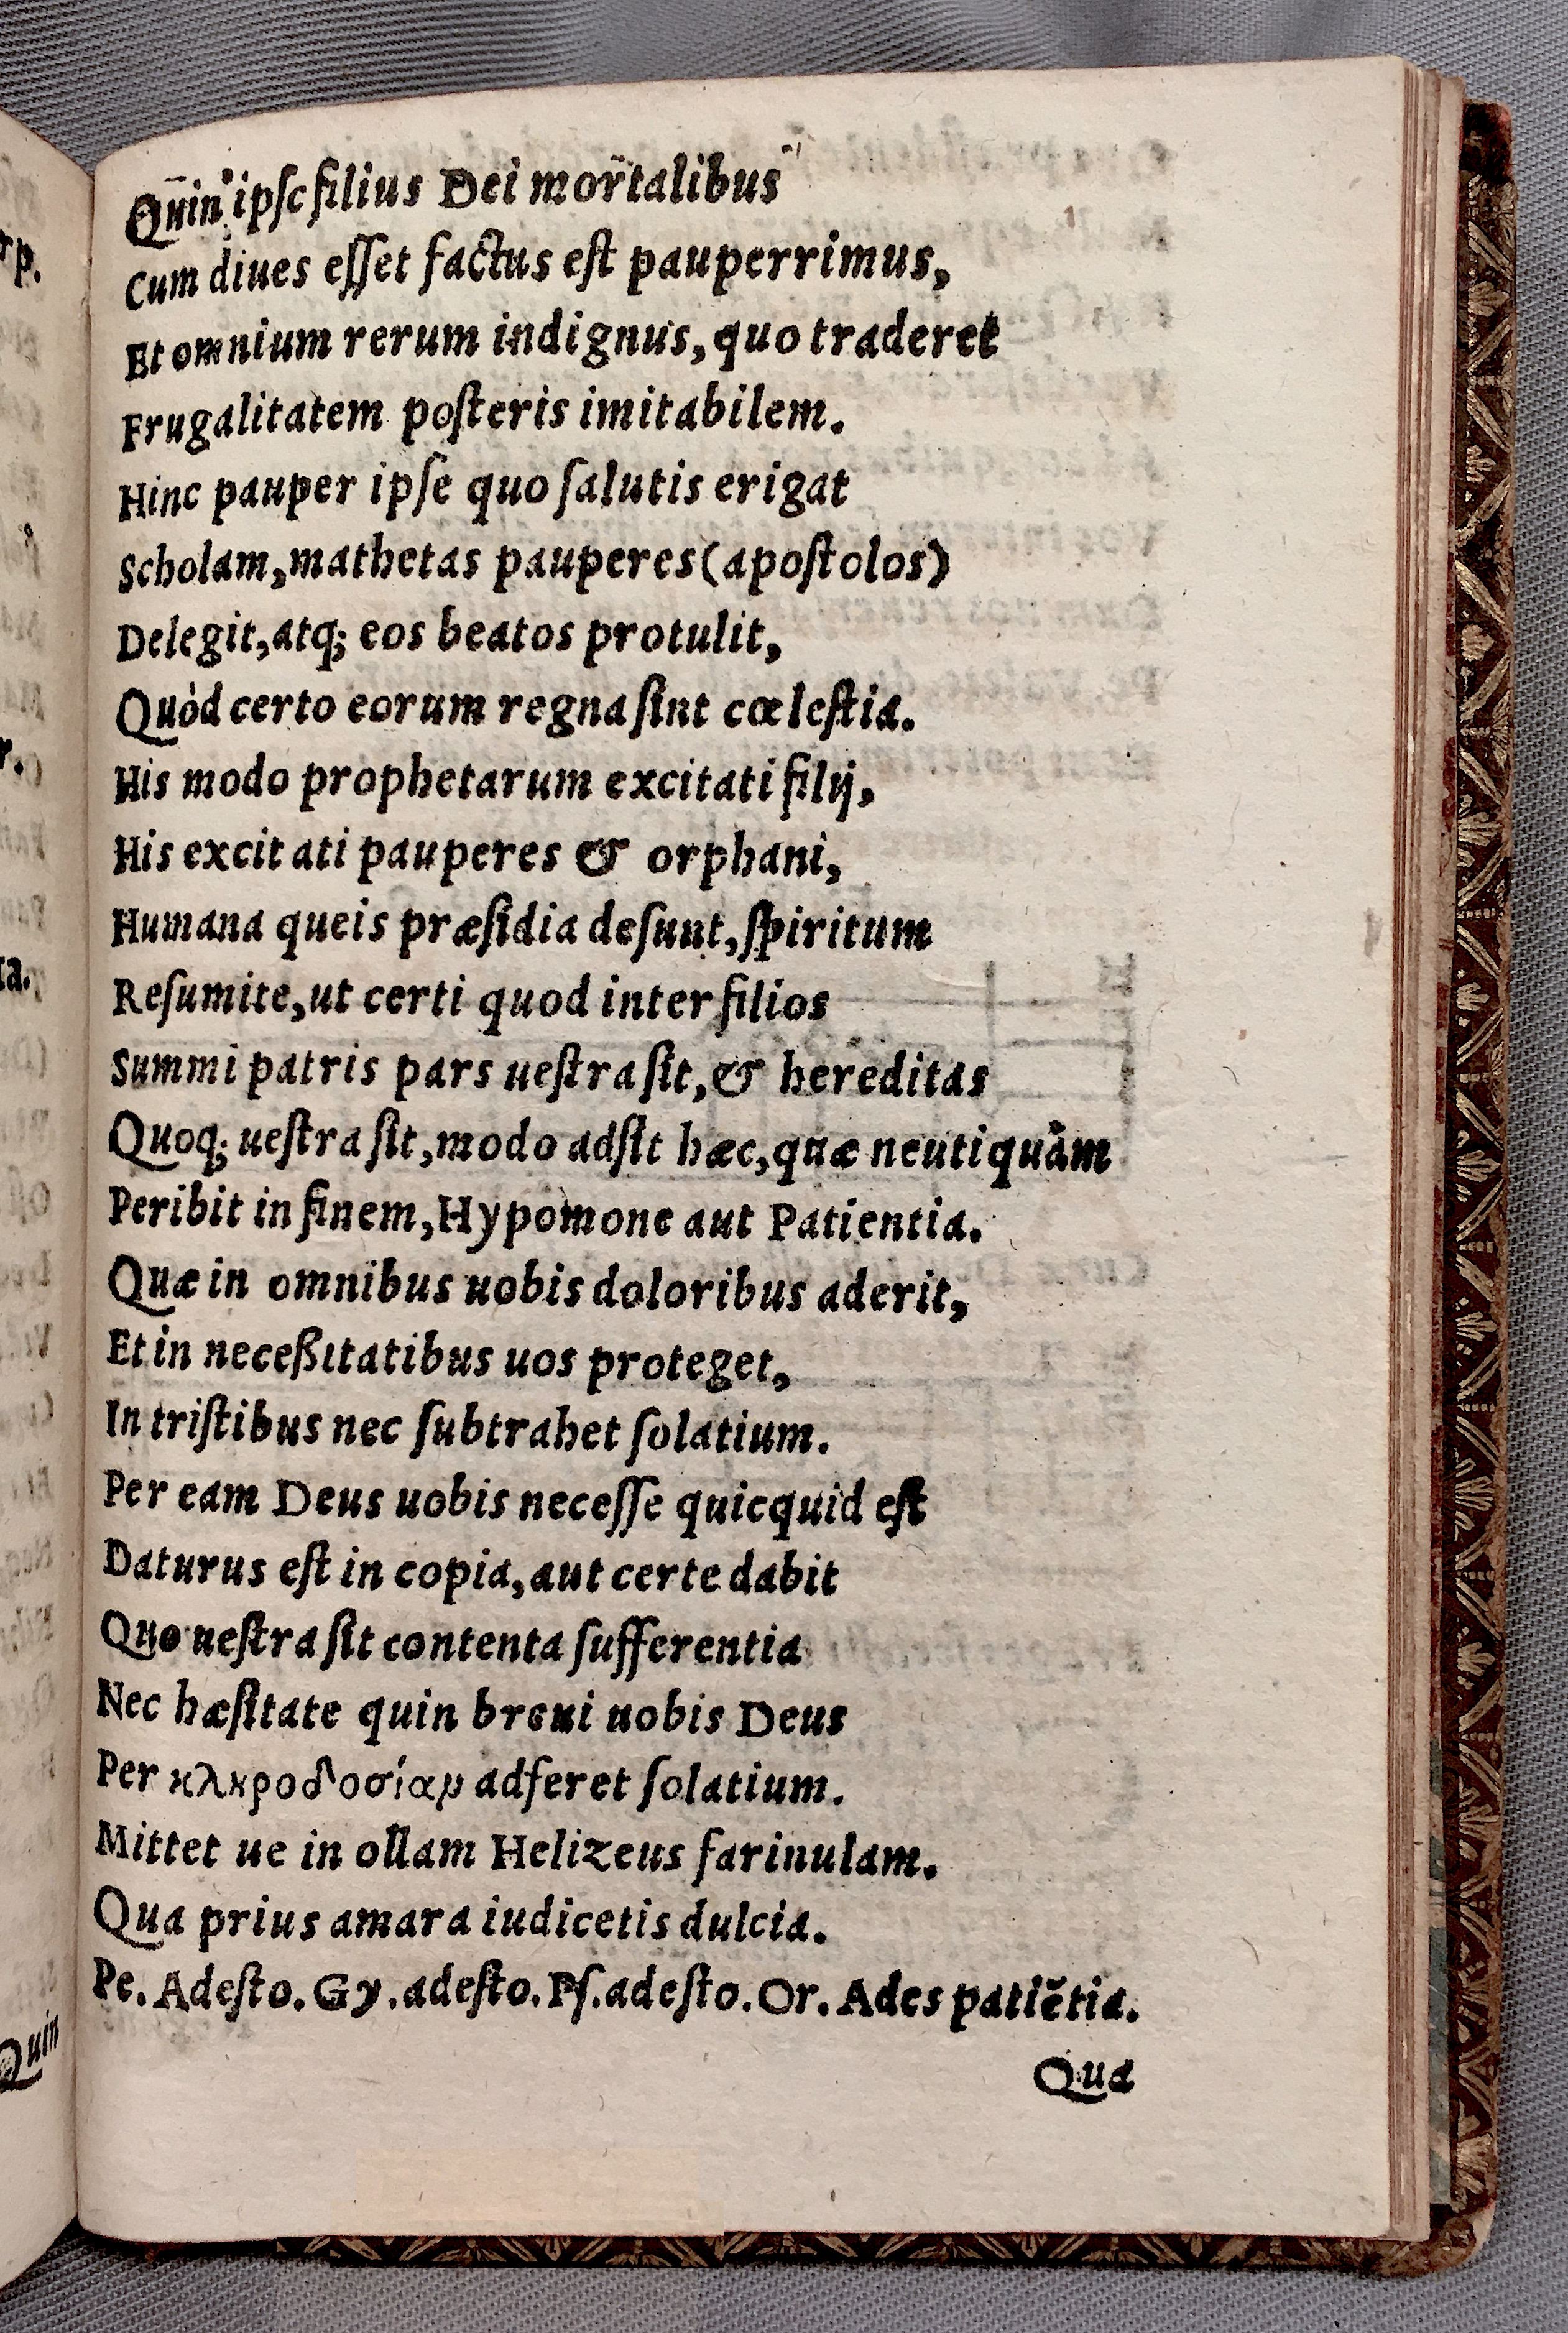 Quin ipſe filius Dei mortalibus
Cum diues eſſet factus eſt pauperrimus,
Et omnium rerum indignus, quo traderet
Frugalitatem poſteris imitabilem.
Hinc pauper ipſe quo ſalutis erigat
Scholam, mathetas pauperes (apoſtolos)
Delegit, atq; eos beatos protulit,
Quòd certo eorum regna ſint cœleſtia.
His modo prophetarum excitati filij,
His excitati pauperes & orphani,
Humana queis præſidia deſunt, ſpiritum
Reſumite, ut certi quod inter filios
Summi patris pars ueſtra ſit, & hereditas
Quoq; ueſtra ſit, modo adſit hæc, quæ neutiquàm
Peribit in finem, Hypomone aut Patientia.
Quæ in omnibus uobis doloribus aderit,
Et in neceßitatibus uos proteget,
In triſtibus nec ſubtrahet ſolatium.
Per eam Deus uobis neceſſe quicquid eſt
Daturus eſt in copia, aut certe dabit
Quo ueſtra ſit contenta ſufferentia
Nec hæſitate quin breui uobis Deus
Per κληροδοσίαμ adferet ſolatium.
Mittet ue in ollam Helizeus farinulam.
Qua prius amara iudicetis dulcia.
Pe. Adeſto. Gy. adeſto. Pſ. adeſto. Or. Ades patiẽtia.
Qua
rp.
r.
Quin